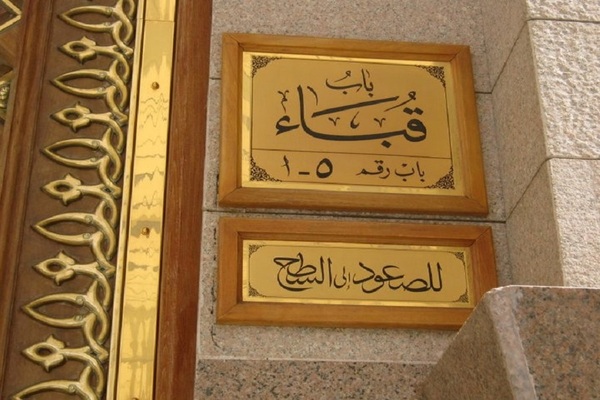 بابُ
قُبَاء
بابْ رقم ٥-١
للصعود إلى السطح